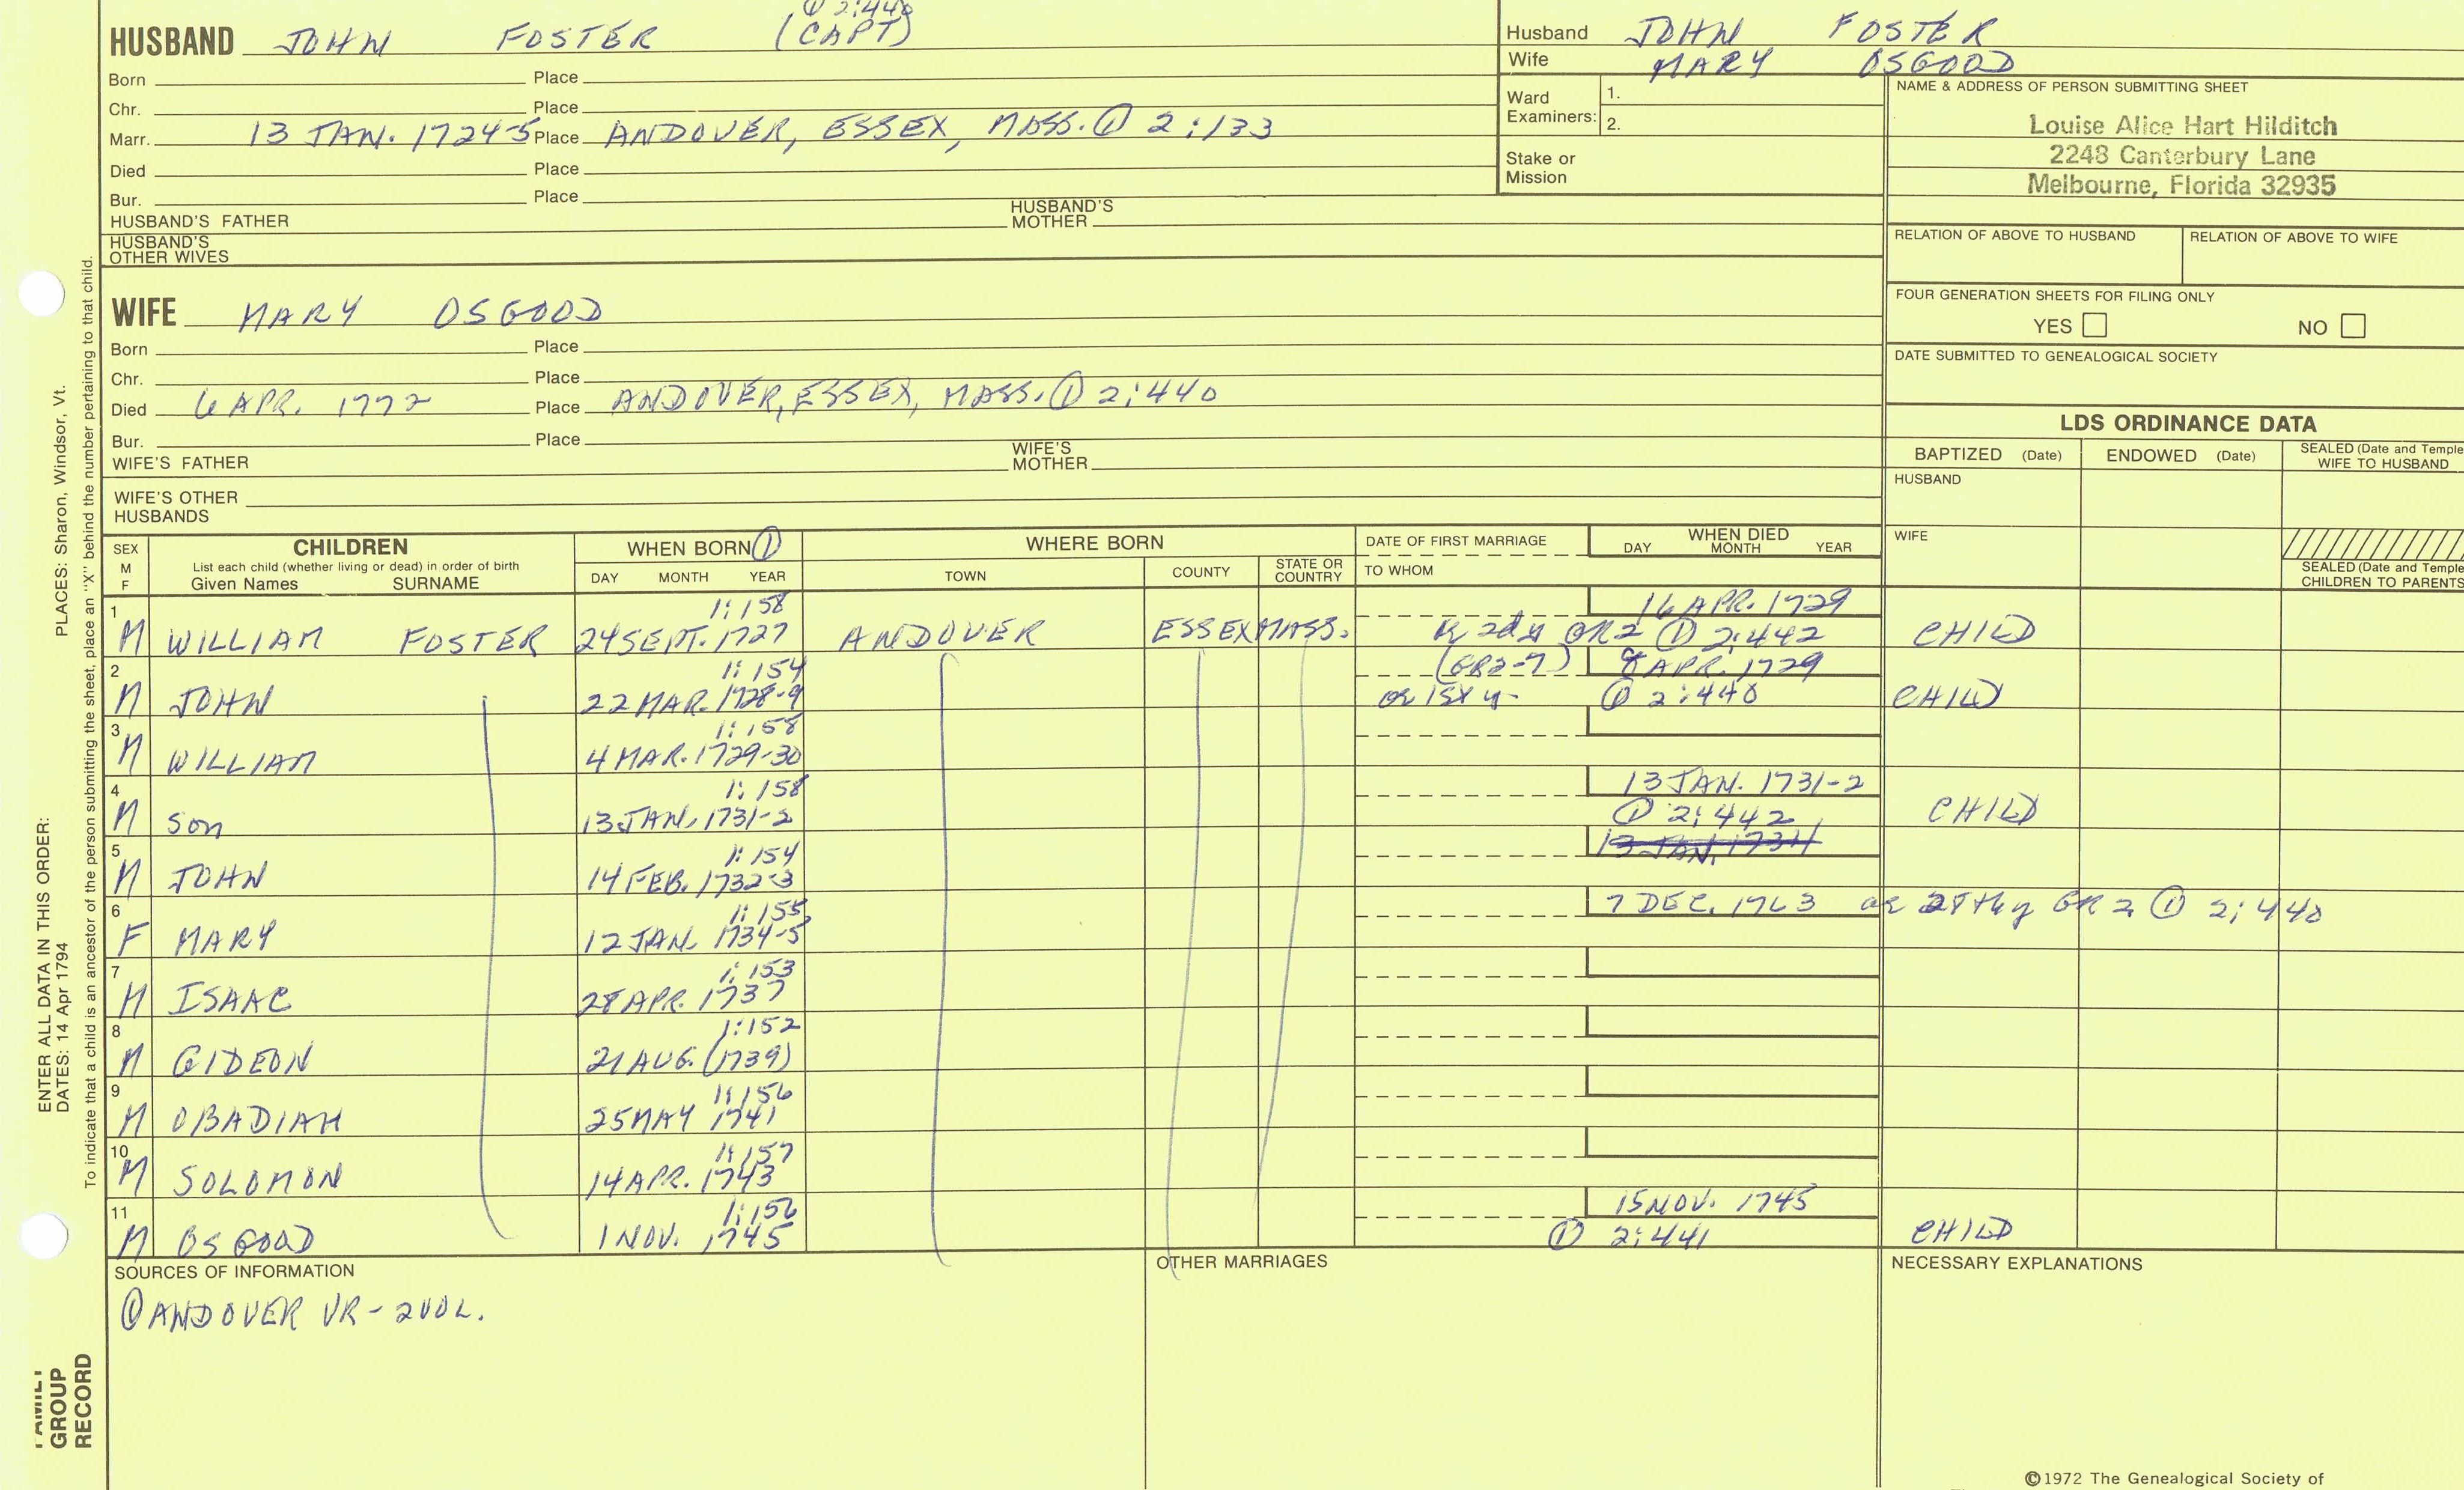 ① 2:440
HUSBAND JOHN FOSTER (CAPT)
Born Place
Chr. Place
Marr. 13 JAN. 1724-5 Place ANDOVER, ESSEX, MASS. ① 2:133
Died Place
Bur. Place
HUSBAND'S FATHER HUSBAND'S MOTHER
HUSBAND'S OTHER WIVES
Husband JOHN FOSTER
Wife MARY OSGOOD
Ward Examiners: 1.
2.
Stake or Mission
NAME & ADDRESS OF PERSON SUBMITTING SHEET
Louise Alice Hart Hilditch
2248 Canterbury Lane
Melbourne, Florida 32935
RELATION OF ABOVE TO HUSBAND RELATION OF ABOVE TO WIFE
FOUR GENERATION SHEETS FOR FILING ONLY
YES NO
DATE SUBMITTED TO GENEALOGICAL SOCIETY
WIFE MARY OSGOOD
Born Place
Chr. Place
Died 6 APR. 1772 Place ANDOVER, ESSEX, MASS. ① 2:440
Bur. Place
WIFE'S FATHER WIFE'S MOTHER
WIFE'S OTHER HUSBANDS
LDS ORDINANCE DATA
BAPTIZED (Date) ENDOWED (Date) SEALED (Date and Temple
WIFE TO HUSBAND
HUSBAND
WIFE
SEALED (Date and Temple
CHILDREN TO PARENTS
SEX M F
CHILDREN
List each child (whether living or dead) in order of birth
Given Names SURNAME
WHEN BORN ①
DAY MONTH YEAR
WHERE BORN
TOWN COUNTY STATE OR COUNTRY
DATE OF FIRST MARRIAGE
TO WHOM
WHEN DIED
DAY MONTH YEAR
1 1:158 16 APR. 1729
M WILLIAM FOSTER 24 SEPT. 1727 ANDOVER ESSEX MASS. GR2 ① 2:442 CHILD
2 1:154 (GR2-7) 8 APR. 1729
M JOHN 22 MAR. 1728-9 ① 2:440 CHILD
3 1:158
M WILLIAM 4 MAR. 1729-30
4 1:158 13 JAN. 1731-2
M SON 13 JAN. 1731-2 ① 2:442 CHILD
5 1:154 13 JAN. 1731
M JOHN 14 FEB. 1732-3
6 1:155 7 DEC. 1763 GR 2 ① 2:440
F MARY 12 JAN. 1734-5
7 1:153
M ISAAC 28 APR. 1737
8 1:152
M GIDEON 21 AUG. (1739)
9 1:156
M OBADIAH 25 MAY 1741
10 1:157
M SOLOMON 14 APR. 1743
11 1:156 15 NOV. 1745
M OSGOOD 1 NOV. 1745 ① 2:441 CHILD
SOURCES OF INFORMATION
① ANDOVER VR - 2 VOL.
OTHER MARRIAGES
NECESSARY EXPLANATIONS
©1972 The Genealogical Society of
ENTER ALL DATA IN THIS ORDER:
DATES: 14 Apr 1794
PLACES: Sharon, Windsor, Vt.
To indicate that a child is an ancestor of the person submitting the sheet, place an "X" behind the number pertaining to that child.
FAMILY
GROUP
RECORD